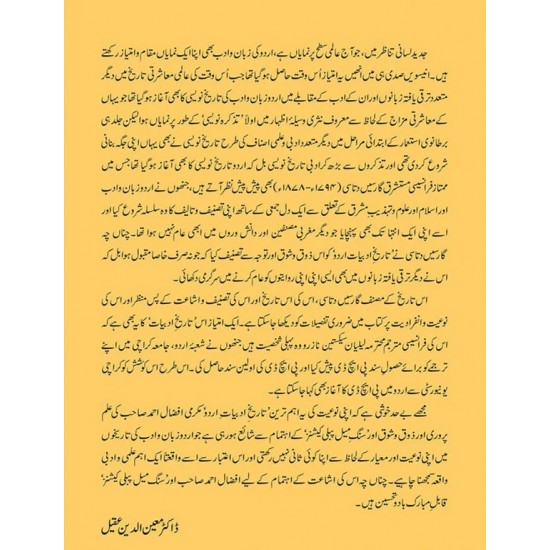 جدید لسانی تناظر میں، جو آج عالمی سطح پر نمایاں ہے، اردو کی زبان و ادب بھی اپنا ایک نمایاں مقام و امتیاز رکھتے
ہیں۔ انیسویں صدی ہی میں انھیں یہ امتیاز اُس وقت حاصل ہوگیا تھا جب اُس وقت کی عالمی معاشرتی تاریخ میں دیگر
متعدد ترقی یافتہ زبانوں اور ان کے ادب کے مقابلے میں اردو زبان و ادب کی تاریخ نویسی کا بھی آغاز ہوگیا تھا جو یہاں
کے معاشرتی مزاج کے لحاظ سے معروف نثری وسیلۂ اظہار میں اولاً 'تذکرہ نویسی' کے طور پر نمایاں ہوا لیکن جلد ہی
برطانوی استعمار کے ابتدائی مراحل میں دیگر متعدد ادبی و علمی اصناف کی طرح تاریخ نویسی نے بھی یہاں اپنی جگہ بنانی
شروع کردی تھی اور تذکروں سے بڑھ کر ادبی تاریخ نویسی بل کہ اردو تاریخ نویسی کا بھی آغاز ہوگیا تھا جس میں
ممتاز فرانسیسی مستشرق گارسیں دتاسی (۱۷۹۴ء-۱۸۷۸ء) بھی پیش پیش نظر آتے ہیں، جنھوں نے اردو زبان و ادب
اور اسلام اور علوم و تہذیبِ مشرق کے تعلق سے ایک دل جمعی کے ساتھ اپنی تصنیف و تالیف کا وہ سلسلہ شروع کیا اور
اسے اپنی ایک انتہا تک بھی پہنچایا جو دیگر مغربی مصنفین اور دانش وروں میں بھی عام نہیں ہوا تھا۔ چناں چہ
گارسیں دتاسی نے 'تاریخِ ادبیات اردو' کو اس ذوق و شوق اور توجہ سے تصنیف کیا کہ جو نہ صرف خاصا مقبول ہوا بل کہ
اس نے دیگر ترقی یافتہ زبانوں میں بھی ایسی اپنی اپنی روایتوں کو عام کرنے میں سرگرمی دکھائی۔
اس تاریخ کے مصنف گارسیں دتاسی، اس کی اس تاریخ اور اس کی تصنیف و اشاعت کے پس منظر اور اس کی
نوعیت و انفرادیت پر کتاب میں ضروری تفصیلات کو دیکھا جاسکتا ہے۔ ایک امتیاز اس 'تاریخِ ادبیات' کا یہ بھی ہے کہ
اس کی فرانسیسی مترجم محترمہ لیلیان سیکستین نازرو وہ پہلی شخصیت ہیں جنھوں نے شعبۂ اردو، جامعہ کراچی میں اپنے
ترجمے کو برائے حصولِ سند پی ایچ ڈی پیش کیا اور پی ایچ ڈی کی اولین سند حاصل کی۔ اس طرح اس کوشش کو کراچی
یونیورسٹی سے اردو میں پی ایچ ڈی کا آغاز بھی کہا جاسکتا ہے۔
مجھے بے حد خوشی ہے کہ اپنی نوعیت کی یہ اہم ترین 'تاریخ ادبیات اردو' مکرمی افضال احمد صاحب کی علم
پروری اور ذوق و شوق اور 'سنگ میل پبلی کیشنز' کے اہتمام سے شائع ہورہی ہے جو اردو زبان و ادب کی تاریخوں
میں اپنی نوعیت اور معیار کے لحاظ سے اپنا کوئی ثانی نہیں رکھتی اور اس اعتبار سے اسے واقعتاً ایک اہم علمی و ادبی
واقعہ سمجھنا چاہیے۔ چناں چہ اس کی اشاعت کے اہتمام کے لیے افضال احمد صاحب اور 'سنگ میل پبلی کیشنز'
قابلِ مبارک باد و تحسین ہیں۔
ڈاکٹر معین الدین عقیل